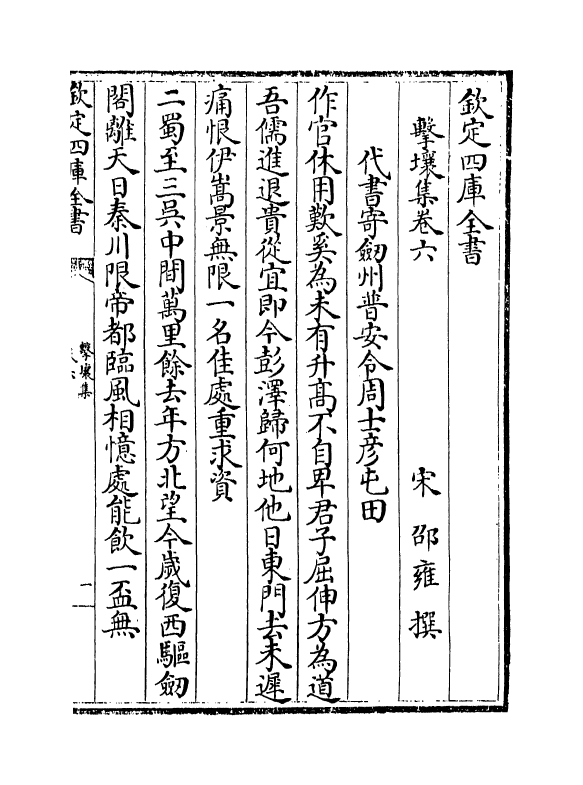 欽定四庫全書
擊壤集卷六
宋　邵雍　撰
代書寄劒州普安令周士彦屯田
作官休用歎奚為未有升髙不自卑君子屈伸方為道
吾儒進退貴從宜即今彭澤歸何地他日東門去未遲
痛恨伊嵩景無限一名佳處重求資
二蜀至三吳中間萬里餘去年方北望今歲復西驅劒
閣離天日秦川限帝都臨風相憶處能飲一盃無
欽定四庫全書
擊壤集